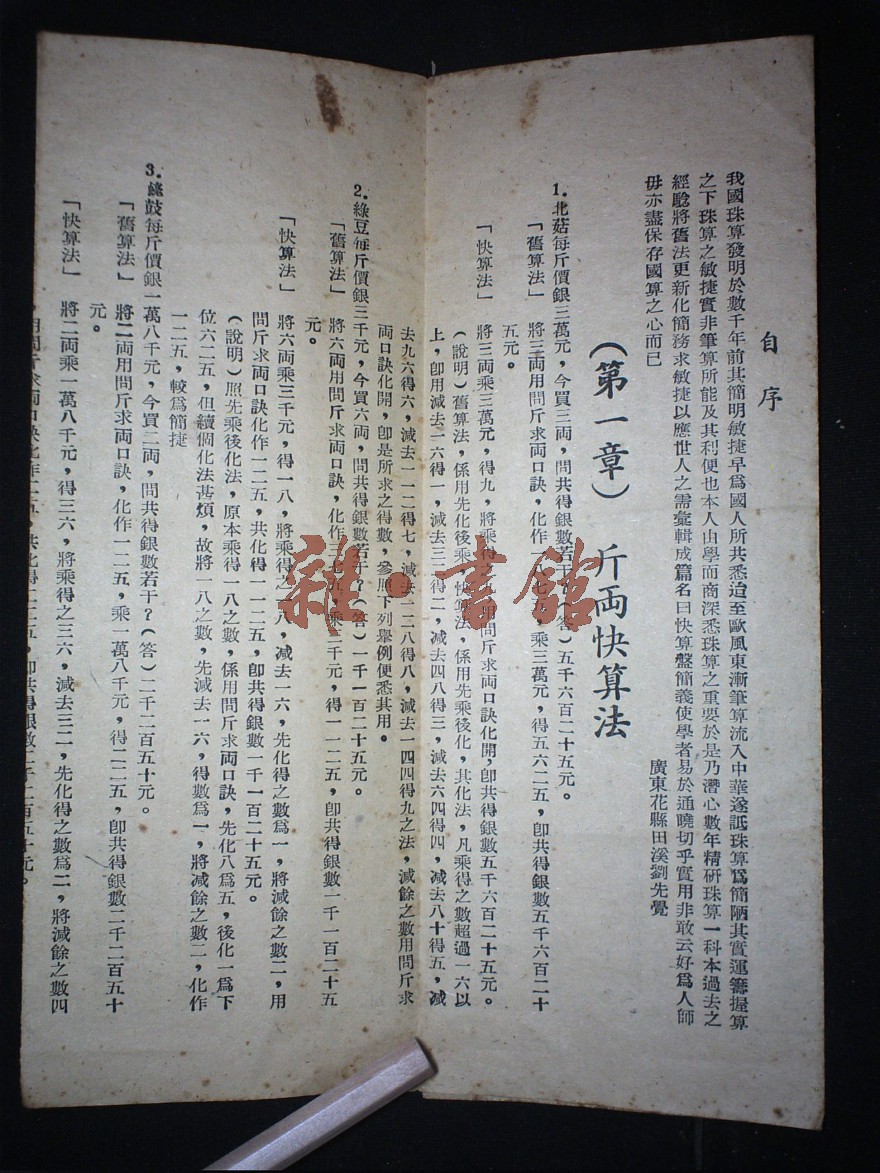 自序
我國珠算發明於數千年前其簡明敏捷早爲國人所共悉迨至歐風東漸筆算流入中華遂詆珠算爲簡陋其實運籌握算
之下珠算之敏捷實非筆算所能及其利便也本人由學而商深悉珠算之重要於是乃潛心數年精研珠算一科本過去之
經驗將舊法更新化簡務求敏捷以應世人之需彙輯成篇名曰快算盤簡義使學者易於通曉切乎實用非敢云好爲人師
毋亦盡保存國算之心而已
廣東花縣田溪劉先覺
(第一章) 斤両快算法
1.北菇每斤價銀三萬元,今買三両,問共得銀數若干?(答)五千六百二十五元。
「舊算法」 將三両用問斤求両口訣,化作一八七五,乘三萬元,得五六二五,卽共得銀數五千六百二十
五元。
「快算法」 將三両乘三萬元,得九,將乘得之九,用問斤求両口訣化開,卽共得銀數五千六百二十五元。
(說明)舊算法,係用先化後乘,快算法,係用先乘後化,其化法,凡乘得之數超過一六以
上,卽用減去一六得一,減去三二得二,減去四八得三,減去六四得四,減去八十得五,減
去九六得六,減去一一二得七,減去一二八得八,減去一四四得九之法,減餘之數用問斤求
両口訣化開,卽是所求之得數,參照下列舉例便悉其用。
2.綠豆每斤價銀三千元,今買六両,問共得銀數若干?(答)一千一百二十五元。
「舊算法」 將六両用問斤求両口訣,化作三七五,乘三千元,得一一二五,卽共得銀數一千一百二十五
元。
「快算法」 將六両乘三千元,得一八,將乘得之一八,減去一六,先化得之數爲一,將減餘之數二,用
問斤求両口訣化作一二五,共化得一一二五,卽共得銀數一千一百二十五元。
(說明)照先乘後化法,原本乘得一八之數,係用問斤求両口訣,先化八爲五,後化一爲下
位六二五,但續個化法甚煩,故將一八之數,先減去一六,得數爲一,將減餘之數二,化作
一二五,較爲簡捷
3.豉每斤價銀一萬八千元,今買二両,問共得銀數若干?(答)二千二百五十元。
「舊算法」 將二両用問斤求両口訣,化作一二五,乘一萬八千元,得二二五,卽共得銀數二千二百五十
元。
「快算法」 將二両乘一萬八千元,得三六,將乘得之三六,減去三二,先化得之數爲二,將減餘之數四
,用問斤求両口訣化作二五,共化得二二五,卽共得銀數二千二百五十元。
雜·書館